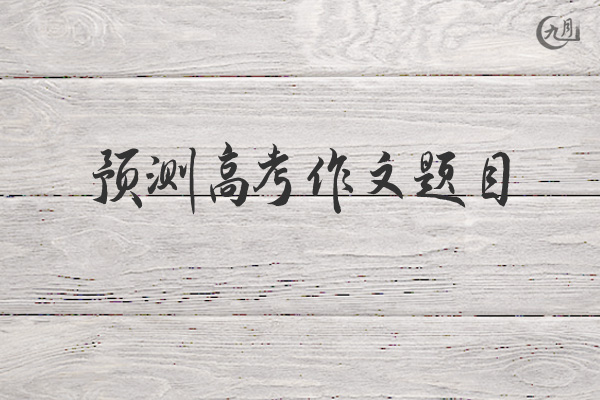 九月
预测高考作文题目